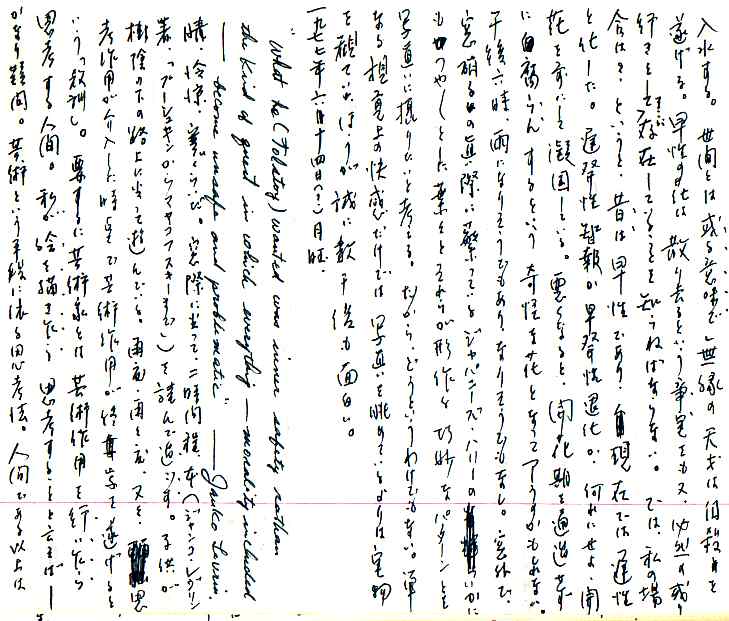 入水する。世間とは或る意味で無縁の天才は自殺を
遂げる。早性の花は散り去るという事実をも又、必然の成り
行きとして存在していることを知らねばならない。では、私の場
合は?、というと、昔は早性であり、現在では遅性
と化した。遅発性智報か早発性退化か、何れにせよ、開
花を前にして凝固している。悪くなると、開花期を通過せず
に白腐らんするという奇怪な花となって了うかもしれない。
午後六時、雨になりそうでもありなりそうでもなし。窓外で、
窓硝子の真際に繁っているジャパニーズ・ハリーのいかに
もつやつやとした葉とそれらが形作る巧妙なパターンとを
写真に撮りたいと考える。だからどうというわけでもない。単
なる視覚上の快感だけでは写真を眺めているよりは実物
を観ていたほうが誠に数千倍も面白い。
一九七七年六月十四日(?)月曜
"What he (Tolstoy) wanted was inner safety rather
the kind of quest in which everything — morality included
— become unsafe and problematic." — Janko Lavrin.
晴、冷涼、寝ころび、窓際に坐って、二時間程、本(ジャンコ・ラブリン
著、「プーシュキンからマヤコフスキーまで」)を読んで過ごす。子供が
樹陰の下の路上に坐って遊んでいる。再び、再と云、又を、思
考作用が介入した時点で芸術作用が終尊等を遂げると
いう「教訓」。要するに芸術家とは芸術作用を行いながら
思考する人間。私が絵を描きたがり思考することと言えば—
かなり疑問。芸術という手段に依る思考法。人間である以上は